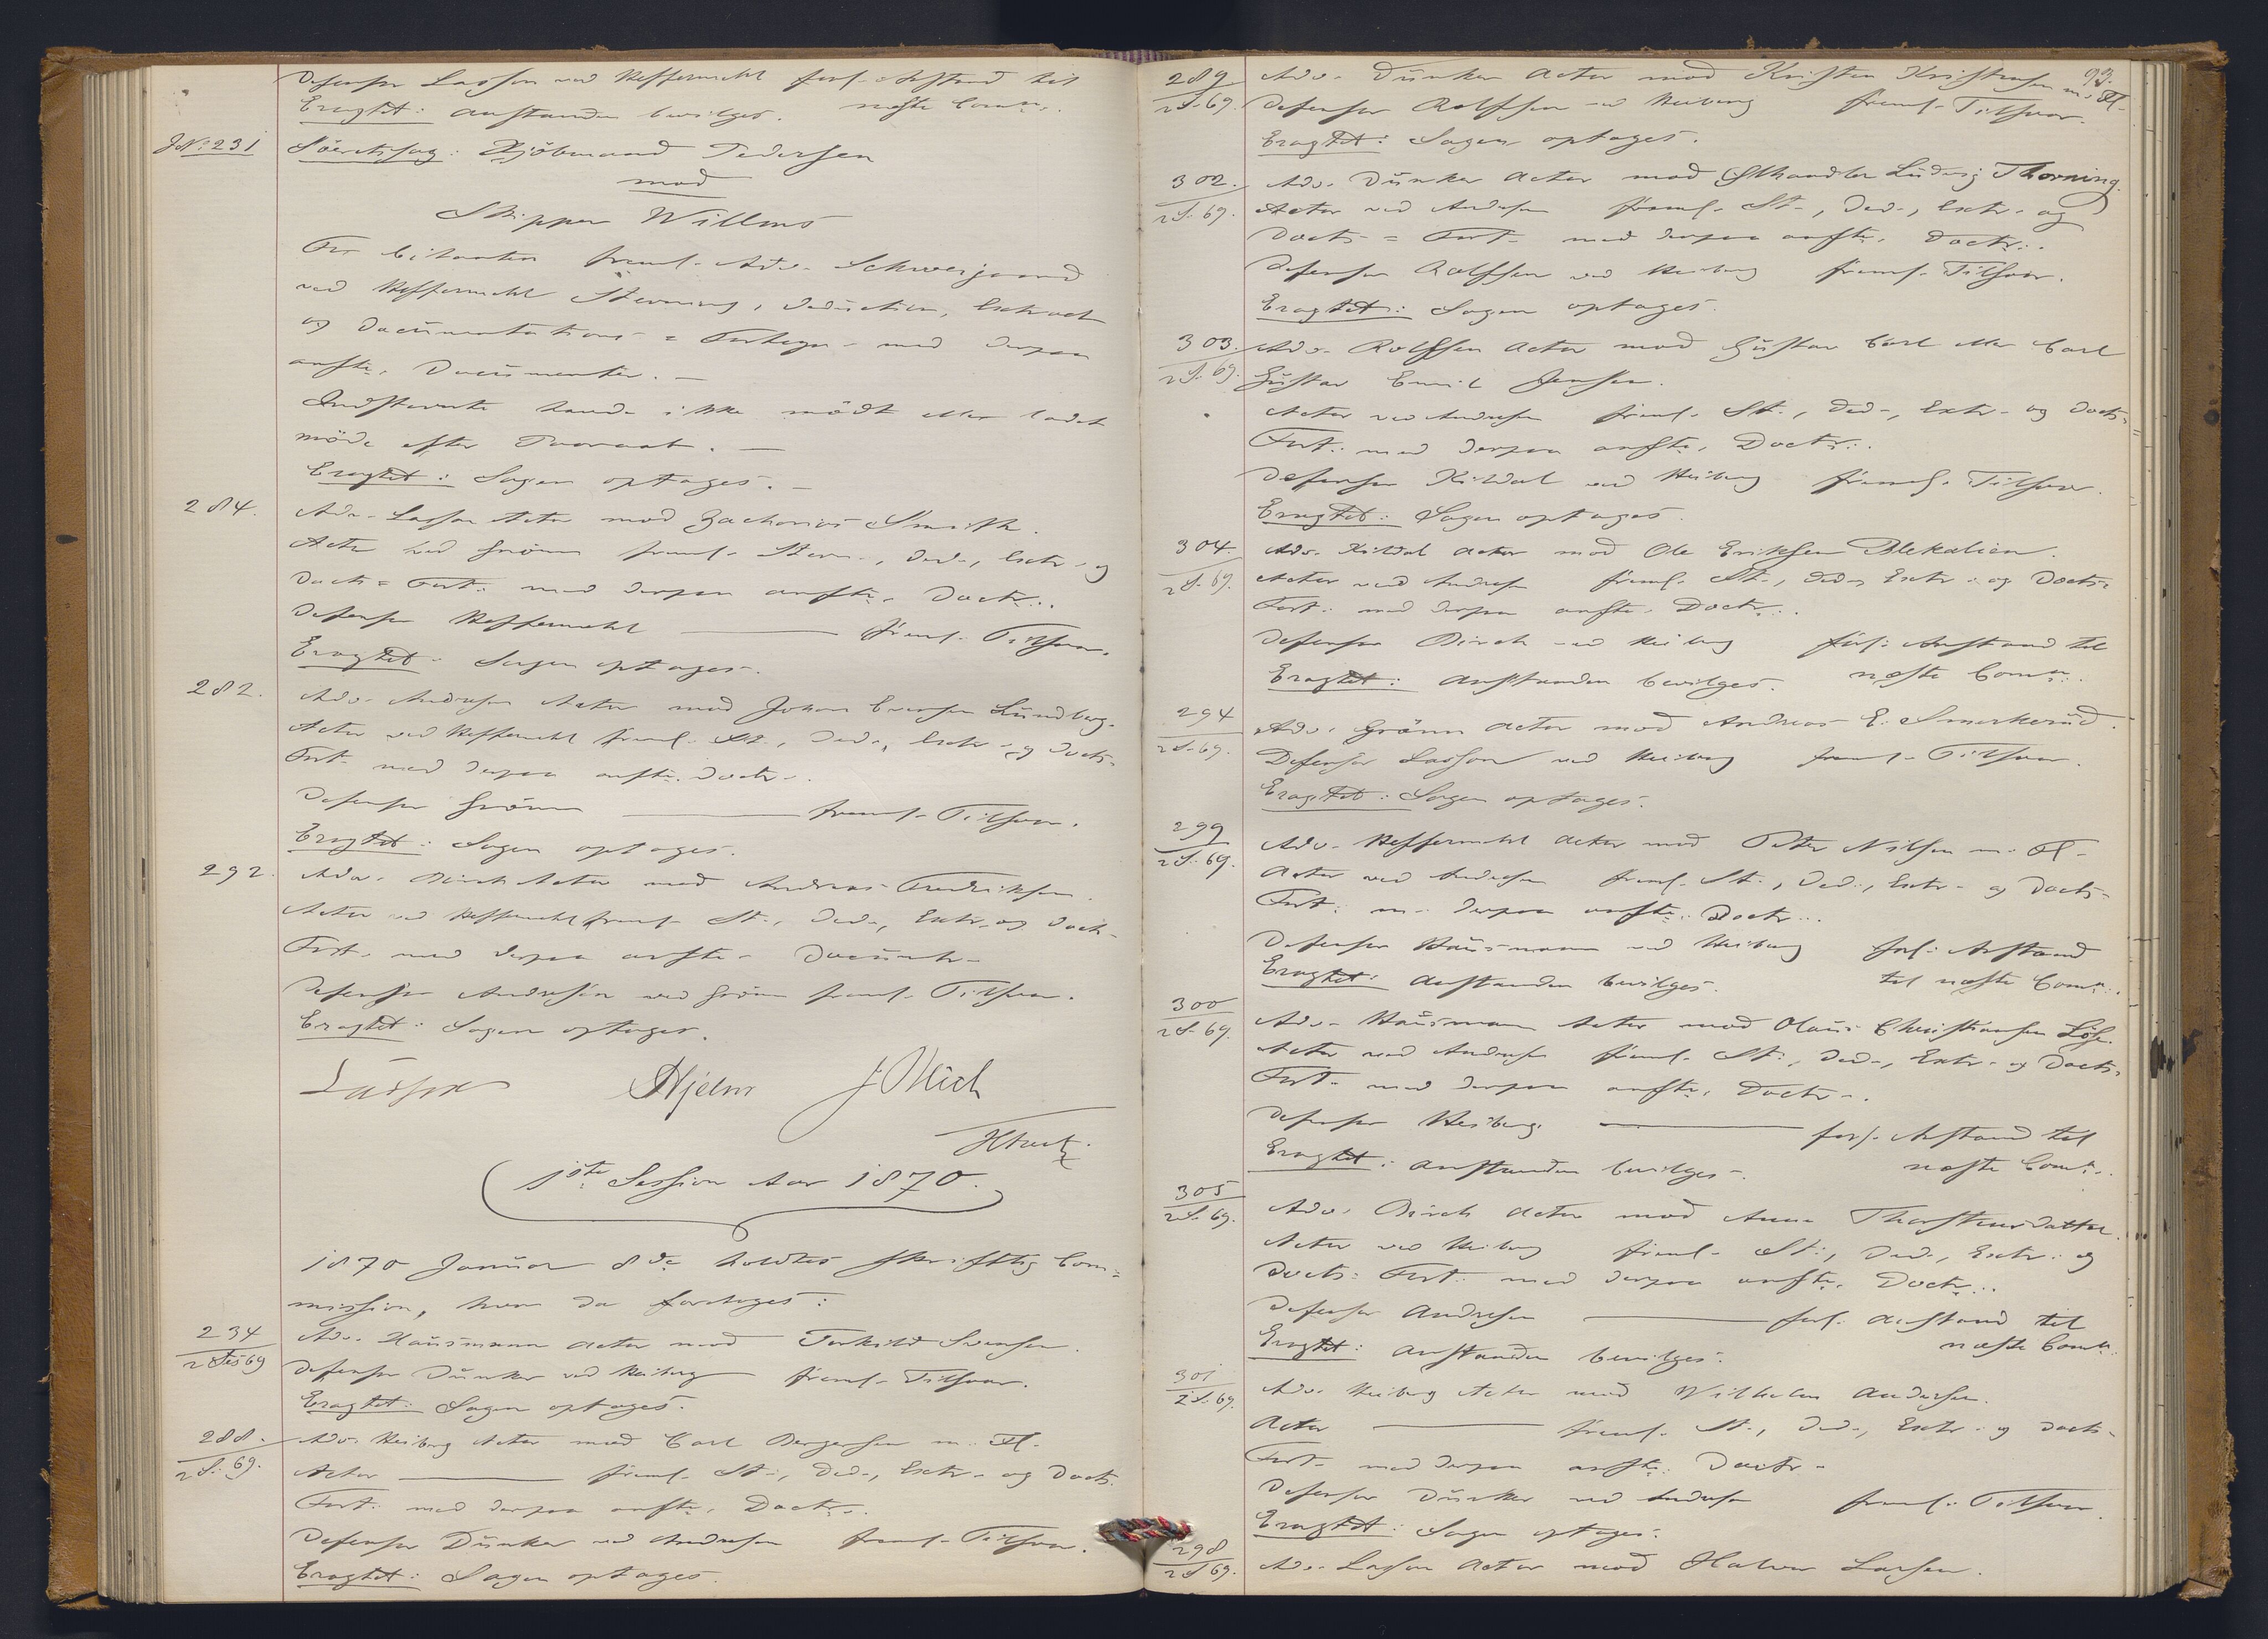 Defensor Lasson ved Heffermehl forl. Anstand til
Eragtet: Anstanden bevilges. næste Comn.
JNo 231 Söeretssag: Kjöbmand Pedersen
mod
Skipper Willms
For Citanten freml. Adv. Schweigaard
ved Heffermehl Stevning, Deduction, Extract
og Documentations = Forhegn. med derpaa
anfte. Documenter.—
Indstevnte havde ikke mödt eller ladet
möde efter Paaraab.—
Eragtet: Sagen optages.—
284. Adv. Lasson Actor mod Zacharias Smith.
Actor ved Grönn freml. Stevn., Ded., Extr. og
Docts = Fort. med derpaa anfte. Doctr.
Defensor Heffermehl freml. Tilsvar.
Eragtet: Sagen optages.
282. Adv. Andresen Actor mod Johan Eversen Lundberg.
Actor ved Heffermehl freml. St., Ded., Extr. og Docts-
Fort. med derpaa anfte. Doctr.
Defensor Grönn freml. Tilsvar.
Eragtet: Sagen optages.
292. Adv. Birch Actor mod Andreas Fredriksen.
Actor ved Heffermehl freml. St., Ded., Extr. og Docts-
Fort. med derpaa anfte. Documtr.
Defensor Andresen ved Grönn freml. Tilsvar.
Eragtet: Sagen optages.
Lasson Hjelm
1ste Session Aar 1870.
1870 Januar 8de holdtes skriftlig Com=
mission, hvor da foretoges:
234 Adv. Hausmann Actor mod Torkild Svensen.
2 Ses 69 Defensor Dunker ved Heiberg freml. Tilsvar.
Eragtet: Sagen optages.
288. Adv. Heiberg Actor mod Carl Bergersen m. Fl.
2 S. 69. Actor freml. St., Ded., Extr. og Docts.
Fort. med derpaa anfte. Doctr.
Defensor Dunker ved Andresen freml. Tilsvar.
Eragtet: Sagen optages.
93.
289 Adv. Dunker Actor mod Kristen Kristensen m. Fl.
2 S. 69. Defensor Rolfsen ved Heiberg freml. Tilsvar.
Eragtet: Sagen optages.
302. Adv. Dunker Actor mod Ludvig Thorning.
2 S. 69. Actor ved Andresen freml. St., Ded., Extr. og
Docts = Fort. med derpaa anfte. Doctr.
Defensor Rolfsen ved Heiberg freml. Tilsvar.
Eragtet: Sagen optages.
303. Adv. Rolfsen Actor mod Gustav Carl eller Carl
2 S. 69. Gustav Emil Jensen.
Actor ved Andresen freml. St., Ded., Extr. og Docts=
Fort. med derpaa anfte. Doctr.
Defensor Kildal ved Heiberg freml. Tilsvar.
Eragtet: Sagen optages.
304. Adv. Kildal Actor mod Ole Eriksen Blekalien.
2 S. 69. Actor ved Andresen freml. St., Ded., Extr. og Docts=
Fort. med derpaa anfte. Doctr.
Defensor Birch ved Heiberg forl. Anstand til
Eragtet: Anstanden bevilges. næste Comn.
294 Adv. Grönn Actor mod Andreas E. Smerkerud.
2 S. 69. Defensor Lasson ved Heiberg freml. Tilsvar.
Eragtet: Sagen optages.
299 Adv. Heffermehl Actor mod Peter Nilsen m. Fl.
2 S. 69. Actor ved Andresen freml. St., Ded., Extr. og Docts-
Fort. m. derpaa anfte. Doctr.
Defensor Hausmann ved Heiberg forl. Anstand
Eragtet: Anstanden bevilges. til næste Comn.
300 Adv. Hausmann Actor mod Olaus Christiansen
2 S. 69. Actor ved Andresen freml. St., Ded., Extr. og Docts=
Fort. med derpaa anfte. Doctr.
Defensor Heiberg forl. Anstand til
Eragtet: Anstanden bevilges. næste Comn.
305 Adv. Birch Actor mod Anne Thorstensdatter.
2 S. 69. Actor ved Heiberg freml. St., Ded., Extr. og
Docts = Fort. med derpaa anfte. Doctr.
Defensor Andresen forl. Anstand til
Eragtet: Anstanden bevilges. næste Comn.
301 Adv. Heiberg Actor mod Wilhelm Andersen.
2 S. 69. Actor freml. St., Ded., Extr. og Docts-
Fort. med derpaa anfte. Doctr.
Defensor Dunker ved Andresen freml. Tilsvar.
Eragtet: Sagen optages.
298 Adv. Lasson Actor mod Halvor Larsen.
2 S 69.